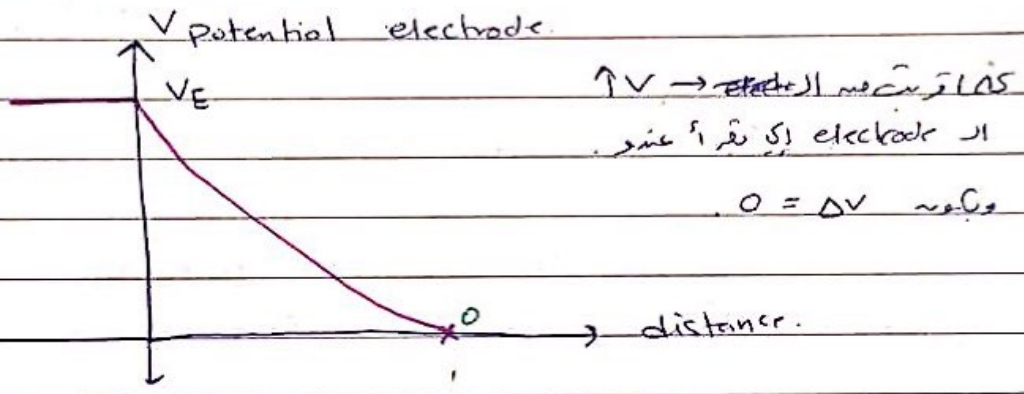 V potential electrode.
VE
↑V → كلما قربت من الـ
الـ electrode إلي بقرأ عندو .
وبكون ΔV = 0 .
0
distance.